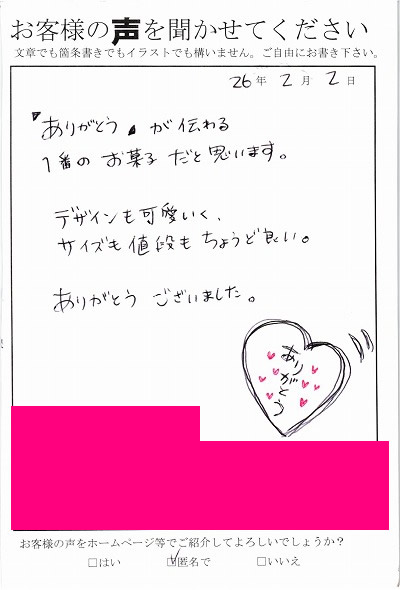 お客様の声を聞かせてください
文章でも箇条書きでもイラストでも構いません。ご自由にお書き下さい。
26年 2月 2日
"ありがとう"が伝わる
1番のお菓子だと思います。
デザインも可愛いく、
サイズも値段もちょうど良い。
ありがとう ございました。
ありがとう
お客様の声をホームページ等でご紹介してよろしいでしょうか?
□はい ☑匿名で □いいえ